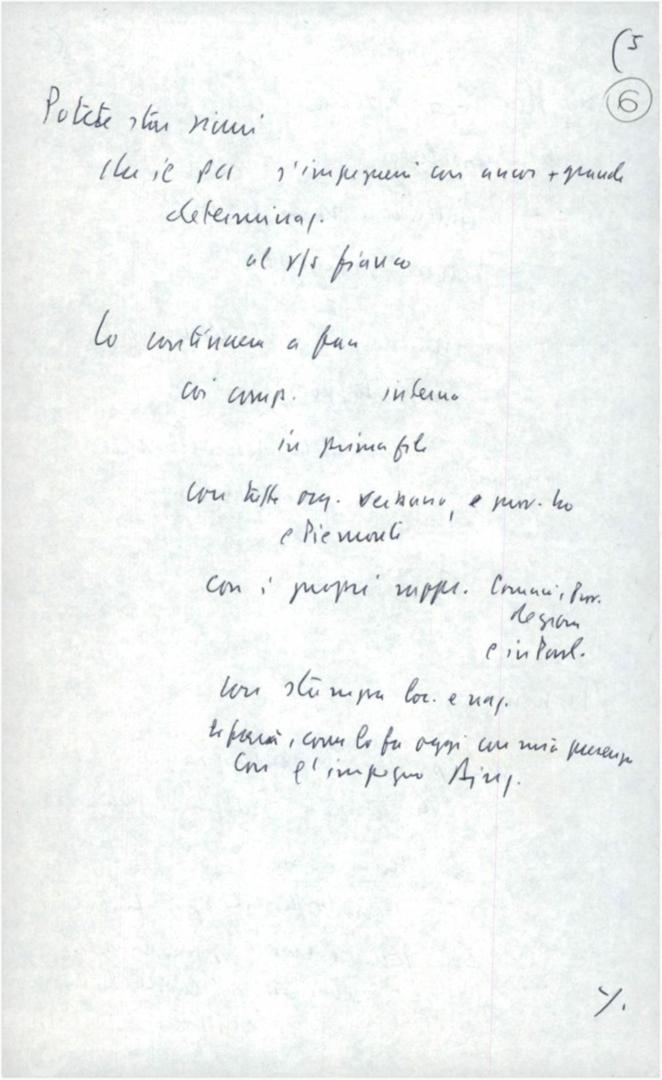 (5
6
Potete star sicuri
che il PCI s'impegnerà con ancor + grande
determinaz.
al v/s fianco
Lo continuerà a fare
coi comp. interno
in prima fila
con tutta org. verbano, e prov. No
e Piemonte
con i propri rappr. Comuni, Prov.
Region
e in Parl.
con stampa loc. e naz.
lo farà, come lo fa oggi con mia presenza
Con l'impegno Direz.
./.